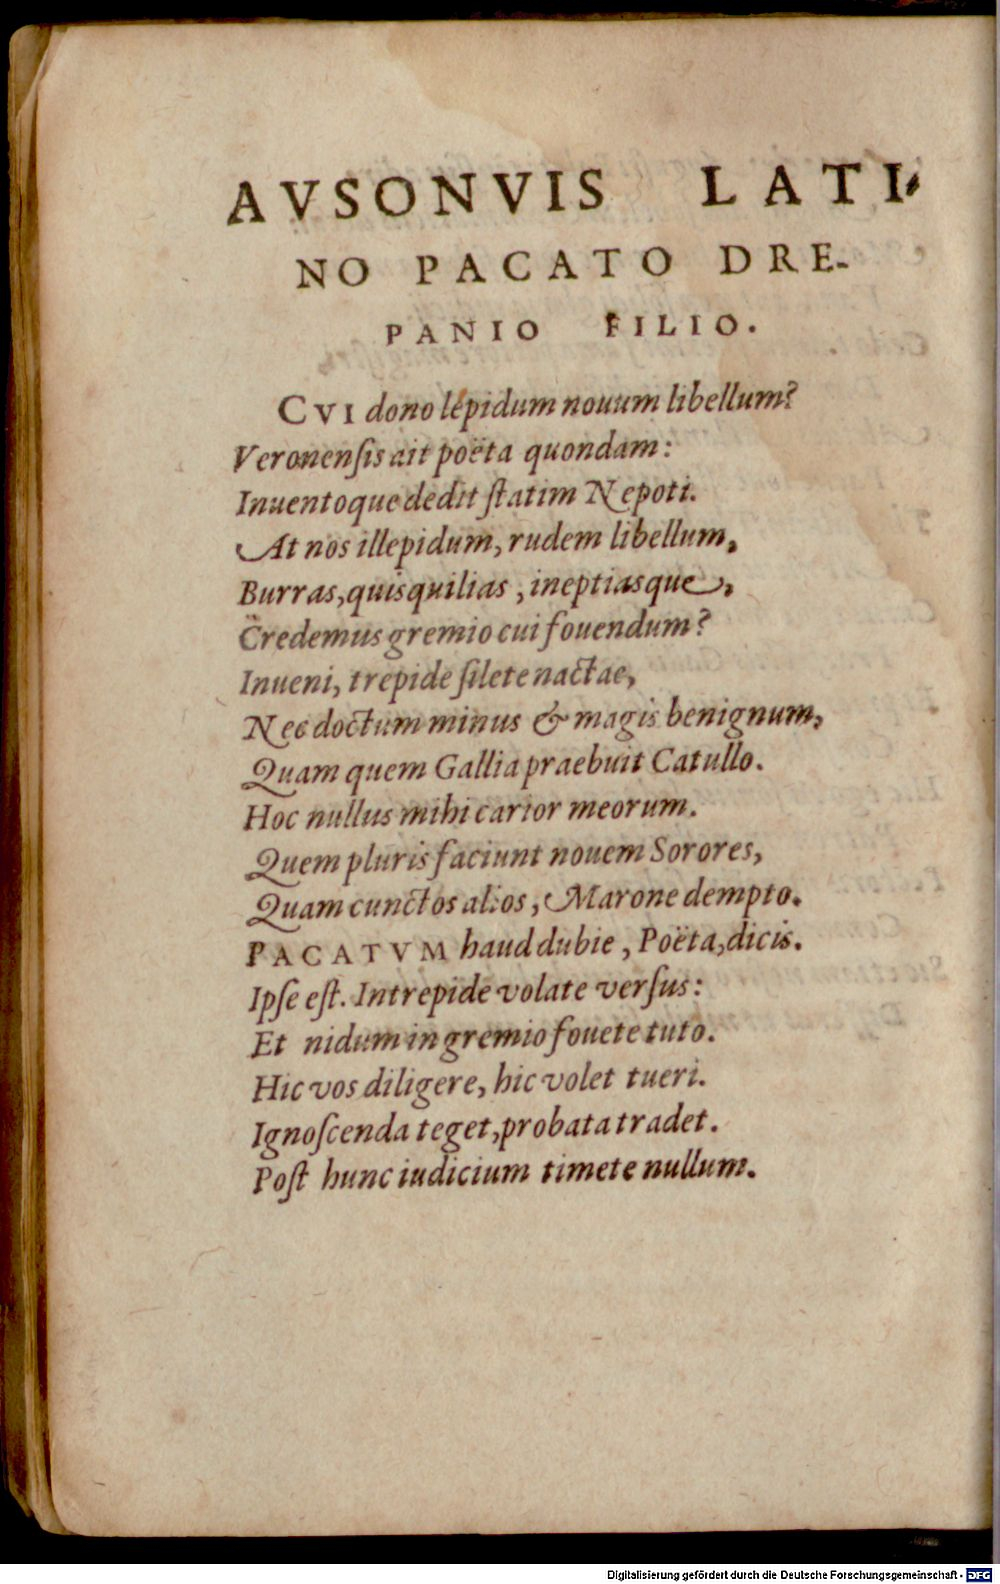 AVSONVIS LATI-
NO PACATO DRE-
PANIO FILIO.
CVI dono lepidum nouum libellum?
Veronenſis ait poëta quondam:
Inuentoque dedit ſtatim Nepoti.
At nos illepidum, rudem libellum,
Burras, quisquilias, ineptiasque,
Credemus gremio cui fouendum?
Inueni, trepide ſilete nactae,
Nec doctum minus & magis benignum,
Quam quem Gallia praebuit Catullo.
Hoc nullus mihi carior meorum.
Quem pluris faciunt nouem Sorores,
Quam cunctos alios, Marone dempto.
PACATVM haud dubie, Poëta, dicis.
Ipſe eſt. Intrepide volate verſus:
Et nidum in gremio fouete tuto.
Hic vos diligere, hic volet tueri.
Ignoſcenda teget, probata tradet.
Poſt hunc iudicium timete nullum.
Digitalisierung gefördert durch die Deutsche Forschungsgemeinschaft - DFG